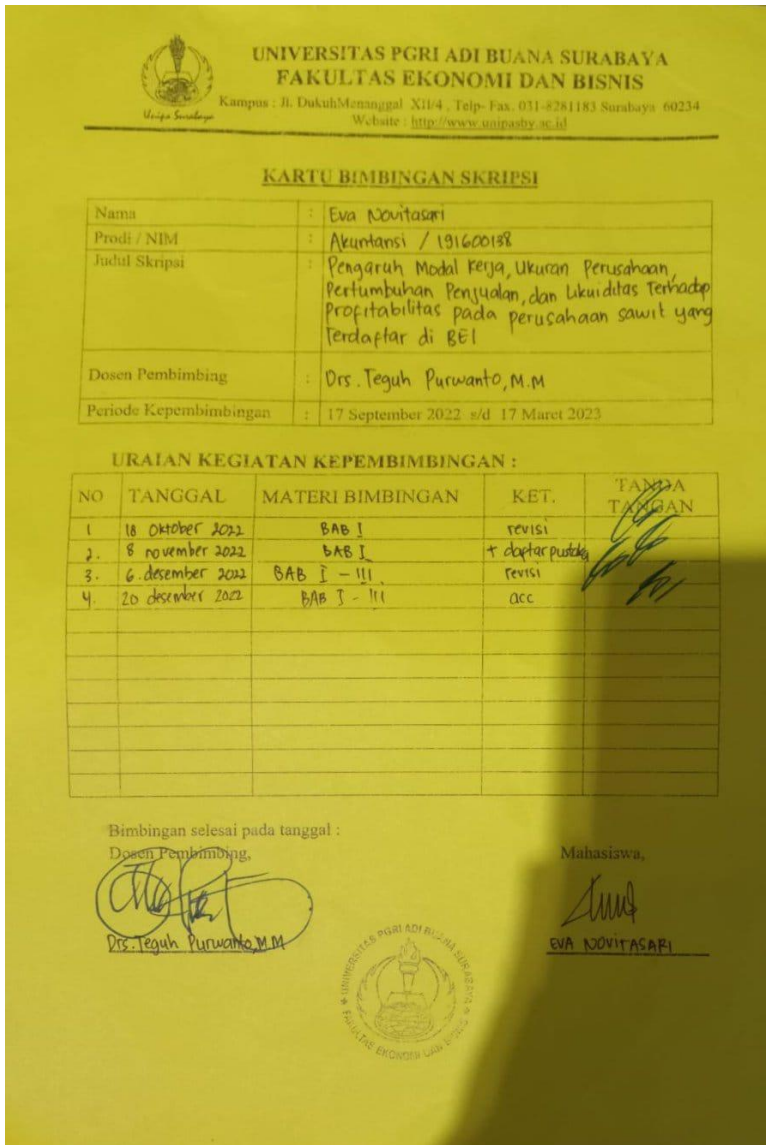 UNIVERSITAS PGRI ADI BUANA SURABAYA
FAKULTAS EKONOMI DAN BISNIS
Kampus : Jl. DukuhMenanggal XII/4 , Telp- Fax. 031-8281183 Surabaya 60234
Website : http://www.unipasby.ac.id
Unipa Surabaya
KARTU BIMBINGAN SKRIPSI
Nama : Eva Novitasari
Prodi / NIM : Akuntansi / 191600138
Judul Skripsi : Pengaruh Modal Kerja, Ukuran Perusahaan,
Pertumbuhan Penjualan, dan Likuiditas Terhadap
Profitabilitas pada perusahaan sawit yang
Terdaftar di BEI
Dosen Pembimbing : Drs. Teguh Purwanto, M.M
Periode Kepembimbingan : 17 September 2022 s/d 17 Maret 2023
URAIAN KEGIATAN KEPEMBIMBINGAN :
NO TANGGAL MATERI BIMBINGAN KET. TANDA TANGAN
1 18 Oktober 2022 BAB I revisi
2. 8 november 2022 BAB I + daptar pustaka
3. 6. desember 2022 BAB I - III revisi
4. 20 desember 2022 BAB I - III acc
Bimbingan selesai pada tanggal :
Dosen Pembimbing, Mahasiswa,
Drs. Teguh Purwanto, M.M EVA NOVITASARI
UNIVERSITAS PGRI ADI BUANA SURABAYA
FAKULTAS EKONOMI DAN BISNIS